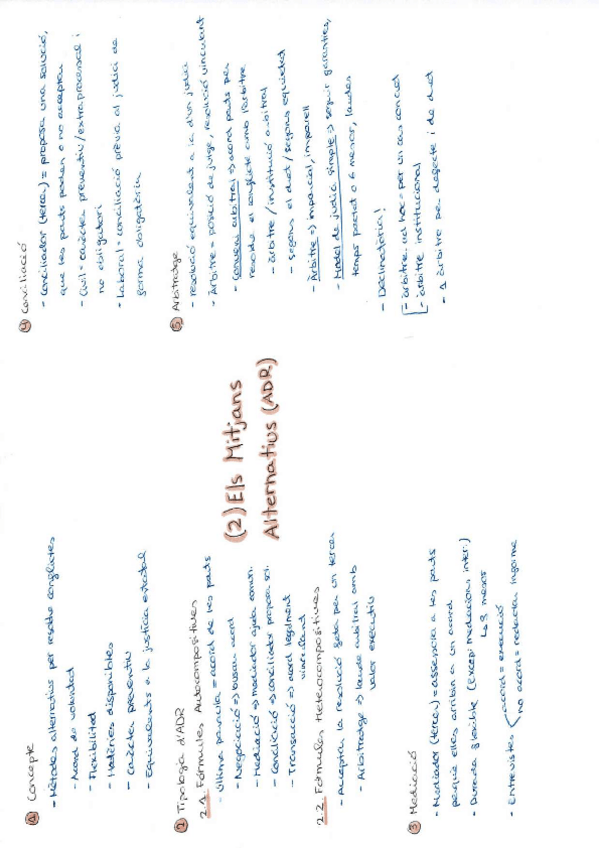 (2) Els Mitjans
Alternatius (ADR)
1 Concepte
- Mètodes alternatius per resoldre conflictes
- Acord de voluntad
- Flexibilitad
- Matèries disponibles
- Caràcter preventiu
- Equivalents a la justícia estatal
2 Tipologia d'ADR
2.1. Fórmules Autocompositives
- Última paraula = acord de les parts
- Negociació => busan acord
- Mediació => mediador ajuda comuni.
- Conciliació => conciliador proposa sol.
- Transacció => acord legalment
vinculant
2.2. Fórmules Heterocompositives
- Acceptar la resolució feta per un tercer
- Arbitratge => laude arbitral amb
valor executiu
3 Mediació
- Mediador (tercer) = assessora a les parts
perquè elles arribin a un acord
- Durada flexible (excep. mediacions inter.)
↳ 3 mesos
- Entrevistes
acord = execució
no acord = redacten informe
4 Conciliació
- Conciliador (tercer) = proposa una solució,
que les parts poden o no acceptar
- Civil = caràcter preventiu / extraprocessal i
no obligatori
- Laboral = conciliació prèvia al judici de
forma obligatòria
5 Arbitratge
- resolució equivalent a la d'un judici
- Àrbitre = posició de jutge, resolució vinculant
- Conveni arbitral => acord parts per
resoldre el conflicte amb l'àrbitre
- àrbitre / institució arbitral
- segons el dret / segons equitat
- Àrbitre => imparcial, imparell
- Model de judici simple => seguir garanties,
temps pactat o 6 mesos, laudes
- Declinatòria!
- àrbitre ad hoc = per un cas concret
- àrbitre institucional
- 1 àrbitre per defecte i de dret